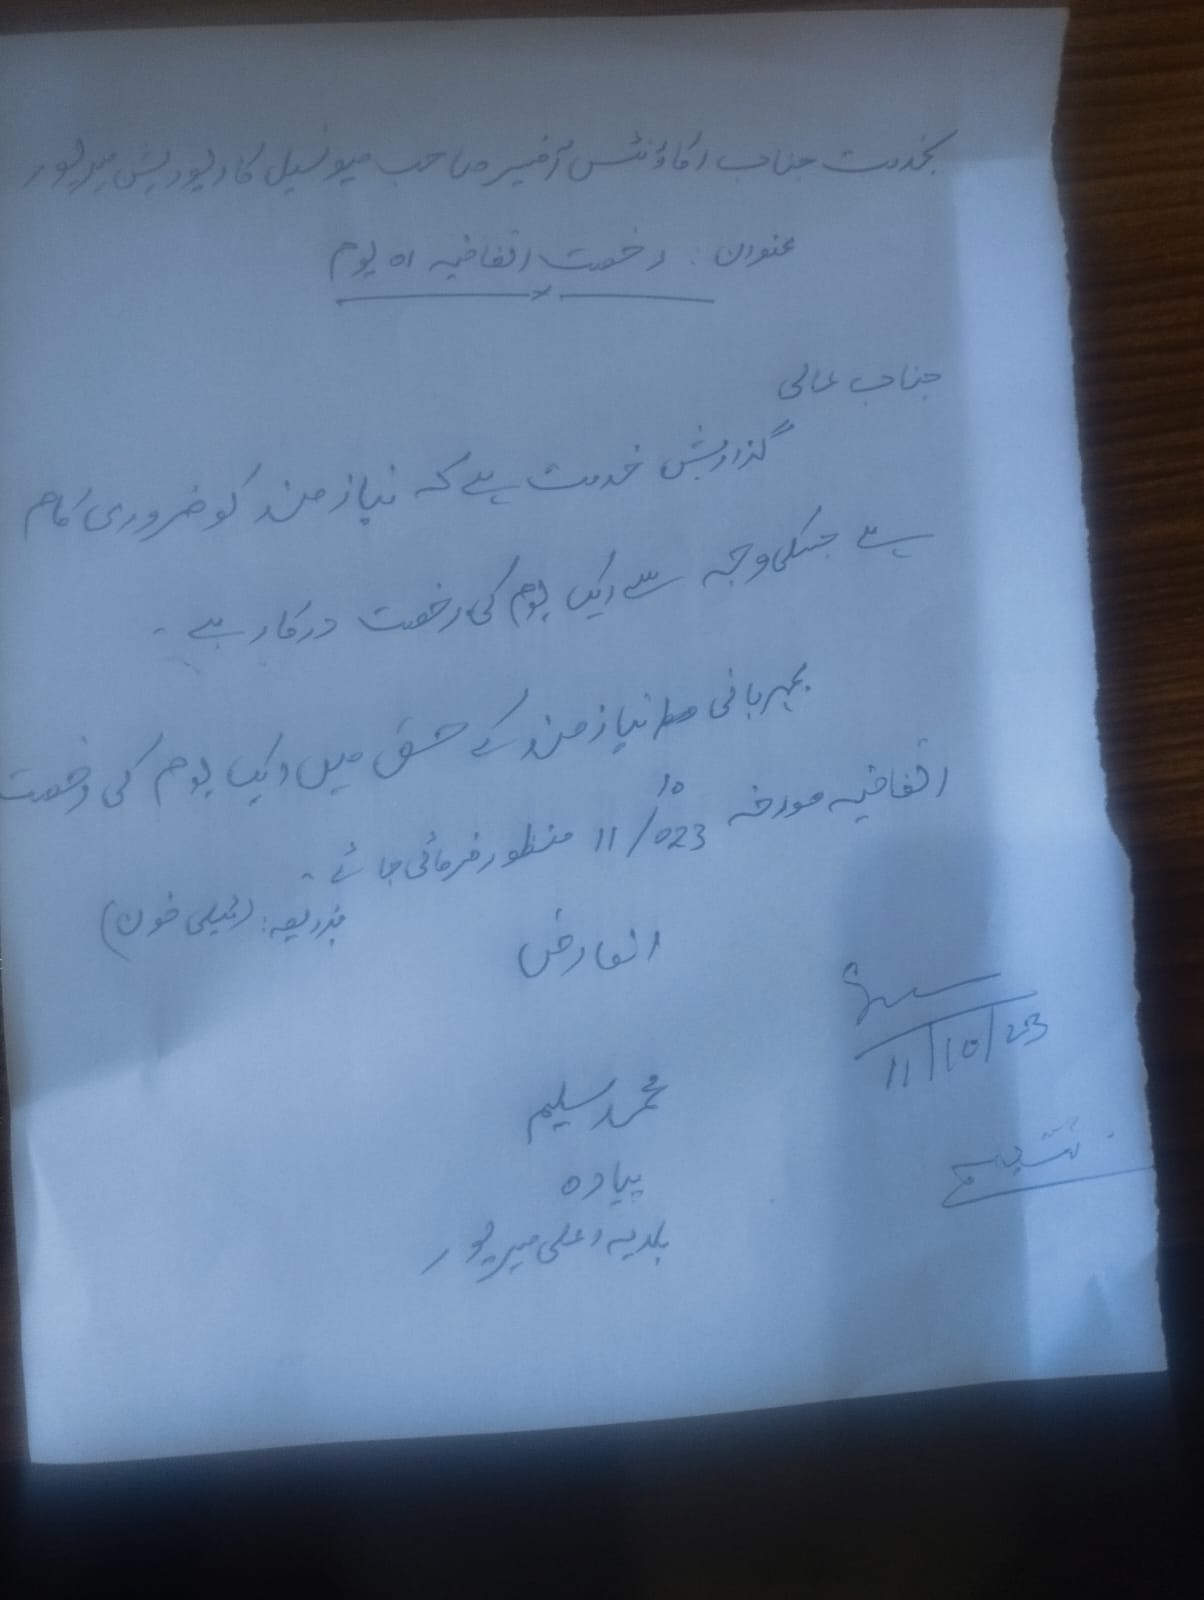 بخدمت جناب اکاؤنٹس آفیسر صاحب میونسپل کارپوریشن میرپور
عنوان: رخصت اتفاقیہ 01 یوم
جناب عالی
گذارش خدمت ہے کہ نیاز مند کو ضروری کام
ہے جسکی وجہ سے ایک یوم کی رخصت درکار ہے۔
بمہربانی نیاز مند کے حق میں ایک یوم کی رخصت
اتفاقیہ مورخہ 11/10/023 منظور فرمائی جائے۔
بذریعہ: (ٹیلی فون)
العارض
11/10/23
محمد سلیم
پیادہ
بلدیہ اعلی میرپور